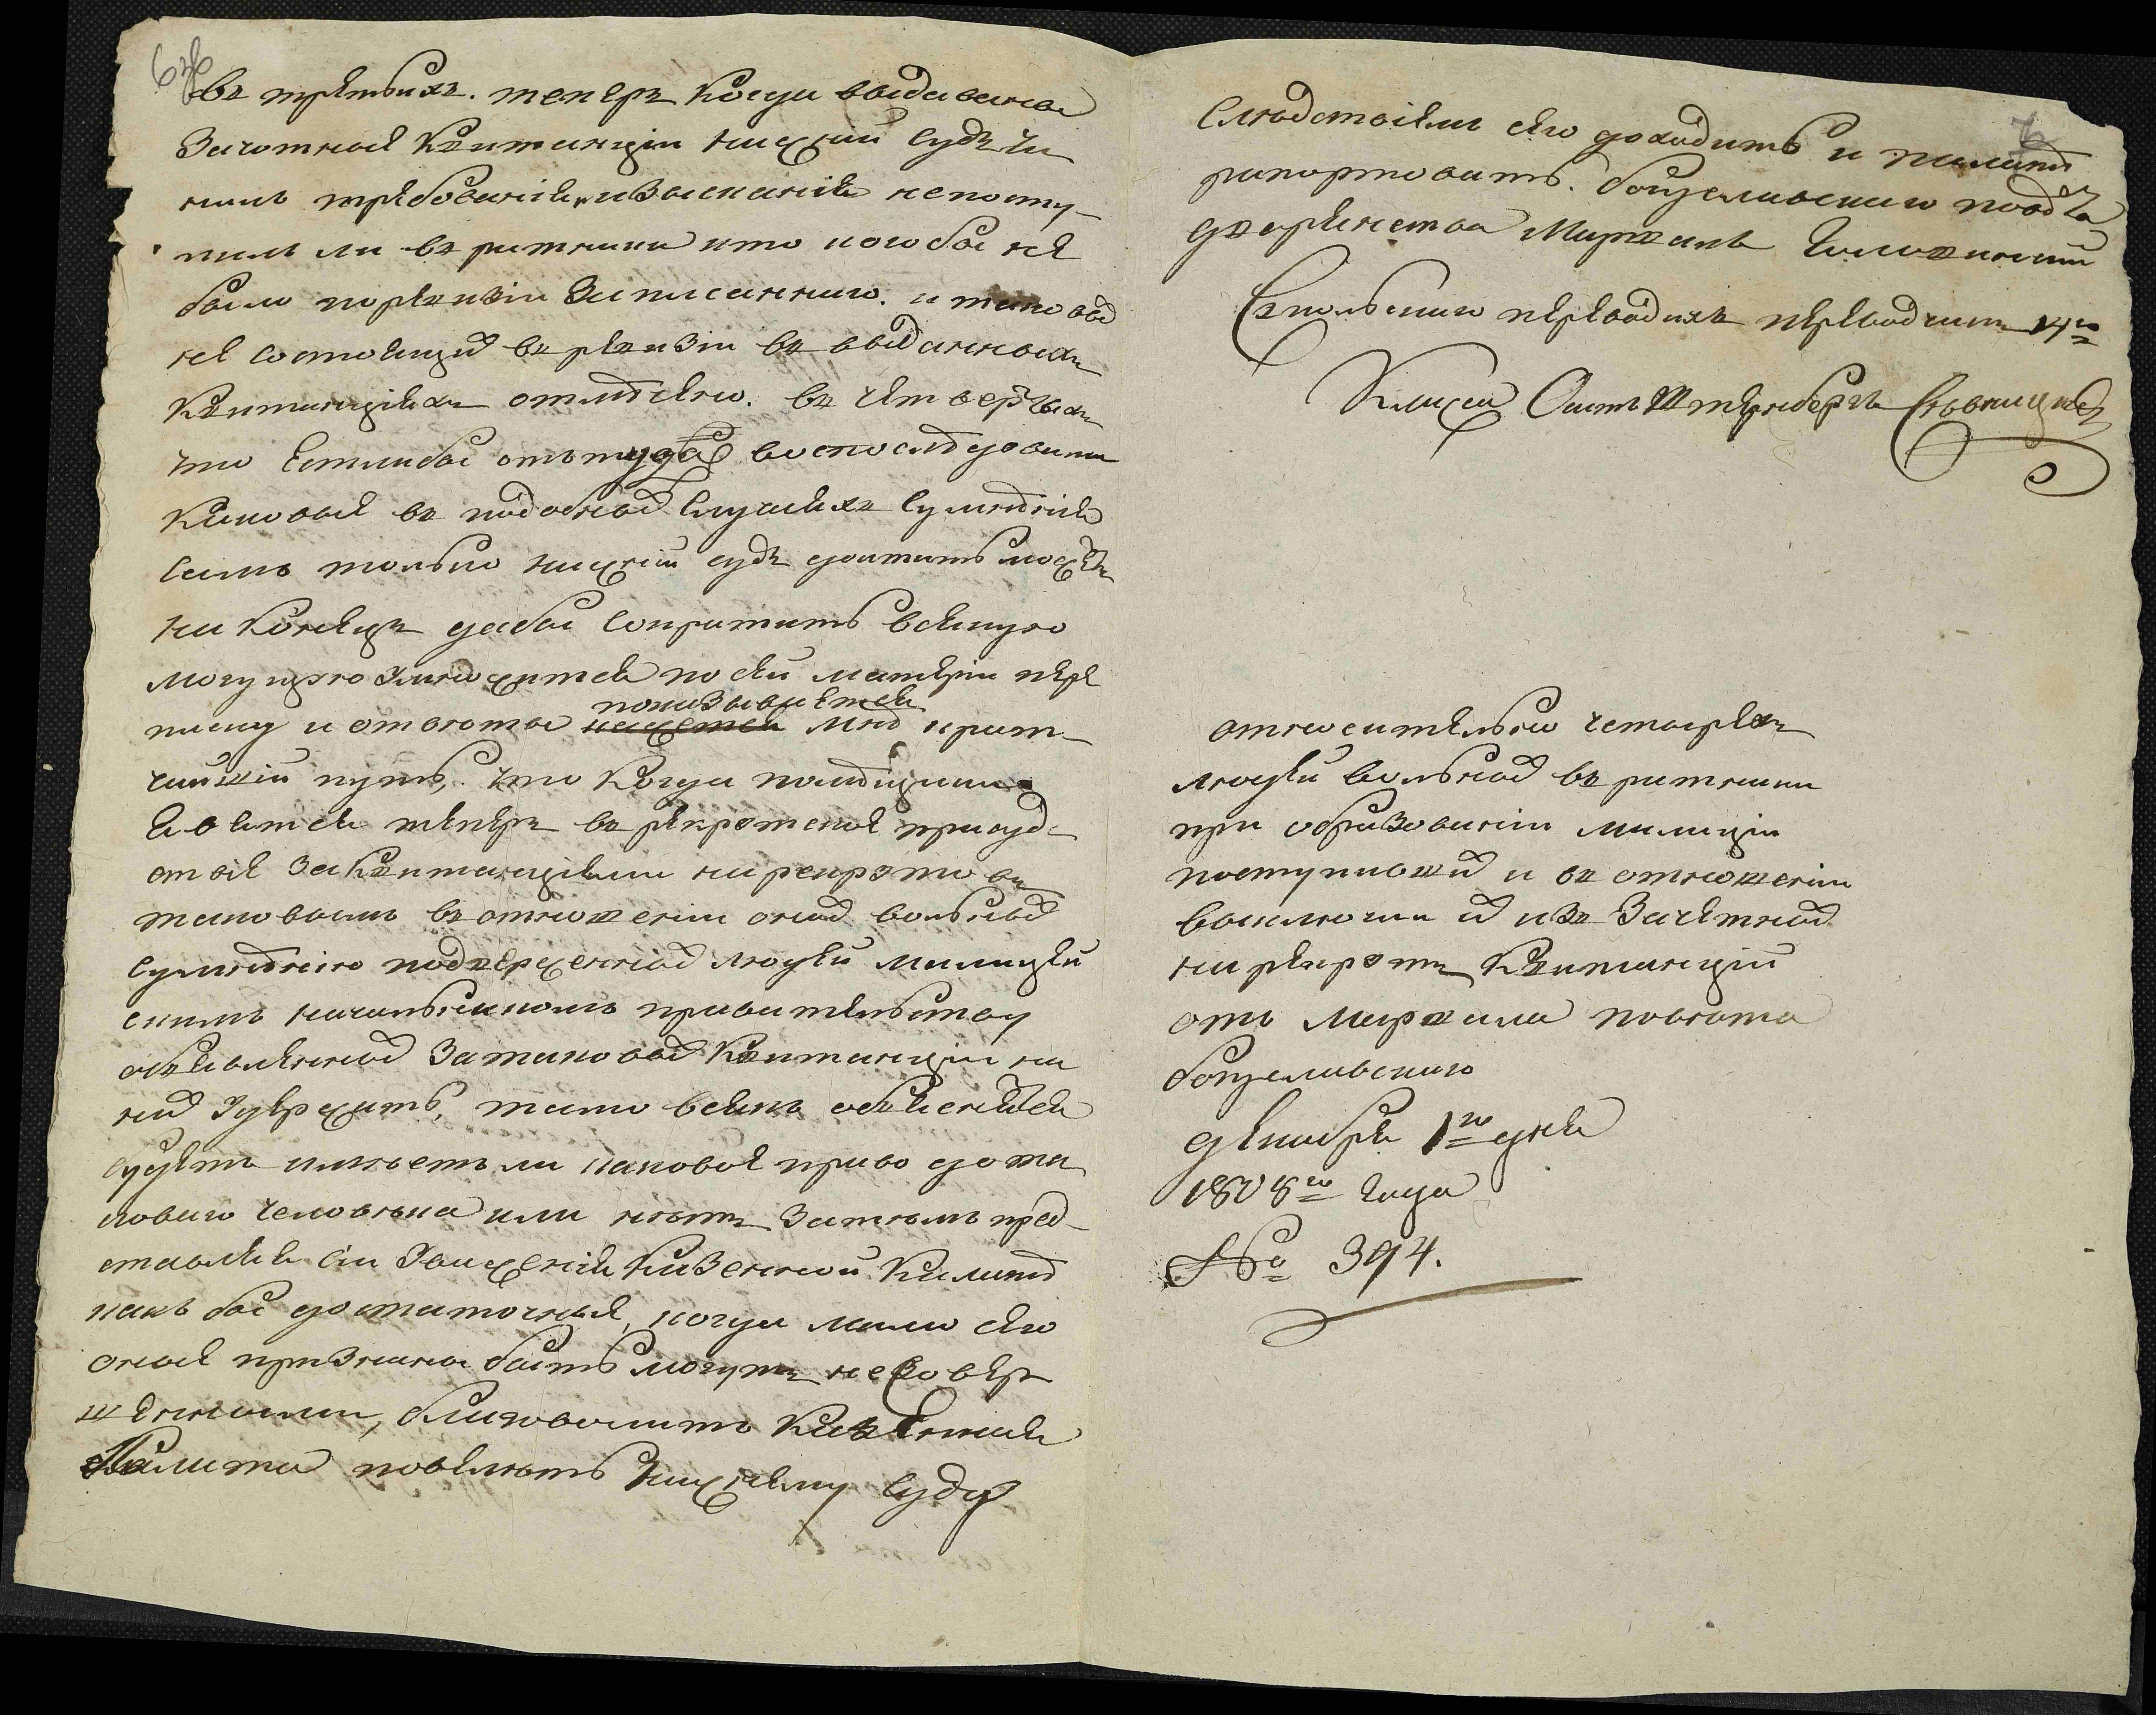 въ третьихъ. теперь когда выдаваны
Зачотныя квитанціи нижній судъ чи
нилъ требованія и взысканія непосту-
пилъ ли въ ратники кто когобы не
было поревизіи Записаннаго. и таковых
не состоящих въ ревизіи въ выданныхъ
квитанціяхъ отмѣчено. въ четвертыхъ
что Естлибы оттуда воспослѣдовали
каковые въ подобных Случаяхъ Сумнѣнія
самъ только нижній судъ доитить можетъ
на конецъ дабы Сократить всякую
могущую Умножится по сей матеріи пере
писку и отвѣты показывается мнѣ крат-
чайшій путь, что когда помѣщики
явятся теперь въ рекрутское присуд-
ствіе Заквитанціями на рекрутъ
таковымъ въ отношеніи оных вольных
Сумнѣнію подверженных людей милицей
скимъ начальникомъ правительству
объявленных Затаковых квитанціи на
них Удержать, тамо всякъ объяснится
будетъ имѣетъ ли каковое право дота
коваго человѣка или нѣтъ Затѣмъ пред-
ставляя сіи Уваженія Казенной Палатѣ
какъ бы достаточные, когда мимо сего
оные признаны быть могутъ несовер
шенными, благоволитъ Казенная
Палата повелѣть Нижнему Суду
Слѣдствіемъ сего доходить и палатѣ
рапортовать. богуславскаго повѣта
дворянства Маршалъ Головинский
Съпольскаго переводилъ переводчикъ 14го
Класса Осипъ Штернбергъ
относительно четырехъ
людей вольных въ ратники
при образованіи милиціи
поступивших и въ отношеніи
выключки их изъ Зачетных
на рекрутъ квитанцій
отъ маршала повѣта
богуславскаго
декабря 1го дня
1808го года
№ 394.